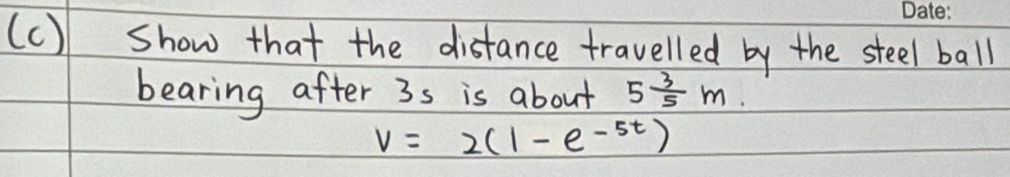 Date:
(c) Show that the distance travelled by the steel ball
bearing after 3s is about 5 3/5 m.
V = 2(1 - e^-5t)